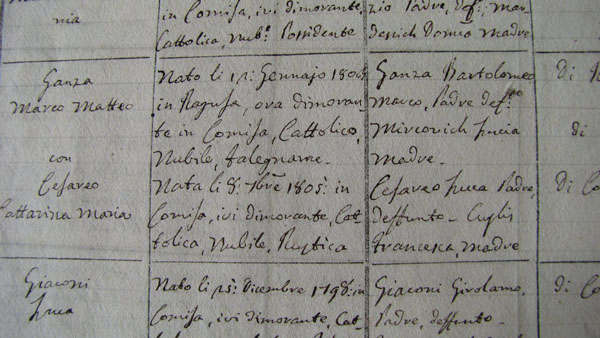 nia
in Comisa, ivi dimorante,
Cattolica, Nub.e Possidente
zio Padre, def.o; Mar-
Domca madre
Ganza
Marco Matteo
con
Cesareo
Cattarina Maria
Nato li Gennajo
in Ragusa, ora dimoran-
te in Comisa, Cattolico,
Nubile, falegname.
Nata li 8: 7bre 1805: in
Comisa, ivi dimorante, Cat-
tolica, Nubile, Rustica
Ganza Bartolomeo
Marco, Padre def.to
Mircovich Lucia
madre.
Cesareo Luca Padre,
deffunto - Cuglis
Francesca, madre
di
di
di Co
Giaconi
Luca
Nato li 15: Dicembre 1798: in
Comisa, ivi dimorante, Cat-
Giaconi Girolamo,
Padre, deffunto -
di Co